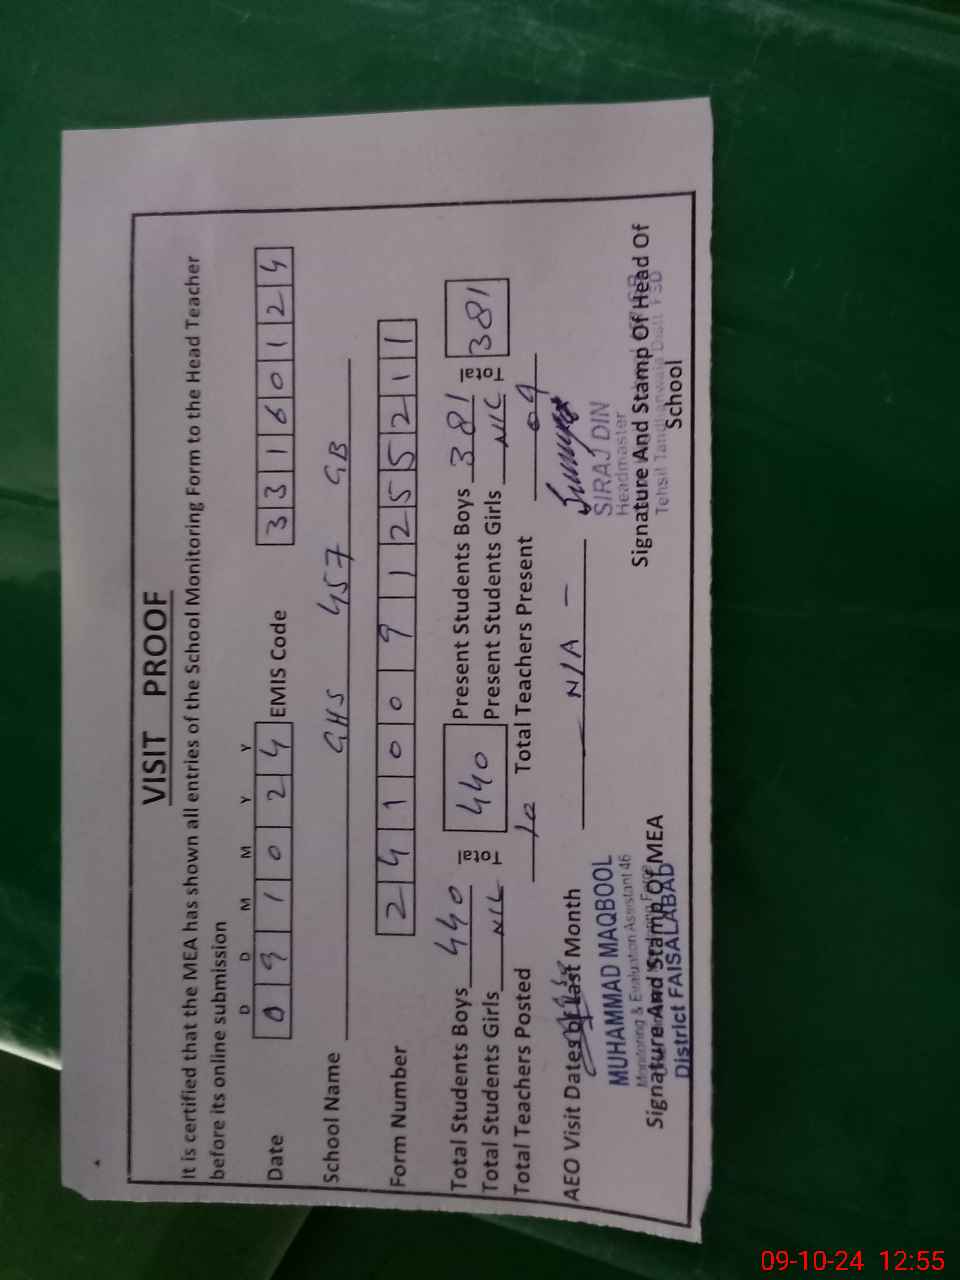 VISIT PROOF
It is certified that the MEA has shown all entries of the School Monitoring Form to the Head Teacher
before its online submission
D D M M Y Y
Date 0 9 1 0 2 4 EMIS Code 3 3 1 6 0 1 2 4
School Name GHS 457 GB
Form Number 2 4 1 0 0 9 1 2 5 5 2 1 1
Total Students Boys 440 Total 440 Present Students Boys 381 Total 381
Total Students Girls NIL Present Students Girls NIL
Total Teachers Posted 10 Total Teachers Present 09
AEO Visit Dates of Last Month N/A
MUHAMMAD MAQBOOL
Monitoring & Evaluation Assistant 46
Signature And Stamp Of MEA
District FAISALABAD
SIRAJ DIN
Headmaster
Signature And Stamp Of Head Of
School
Tehsil Tandlianwala Distt FSD
09-10-24 12:55